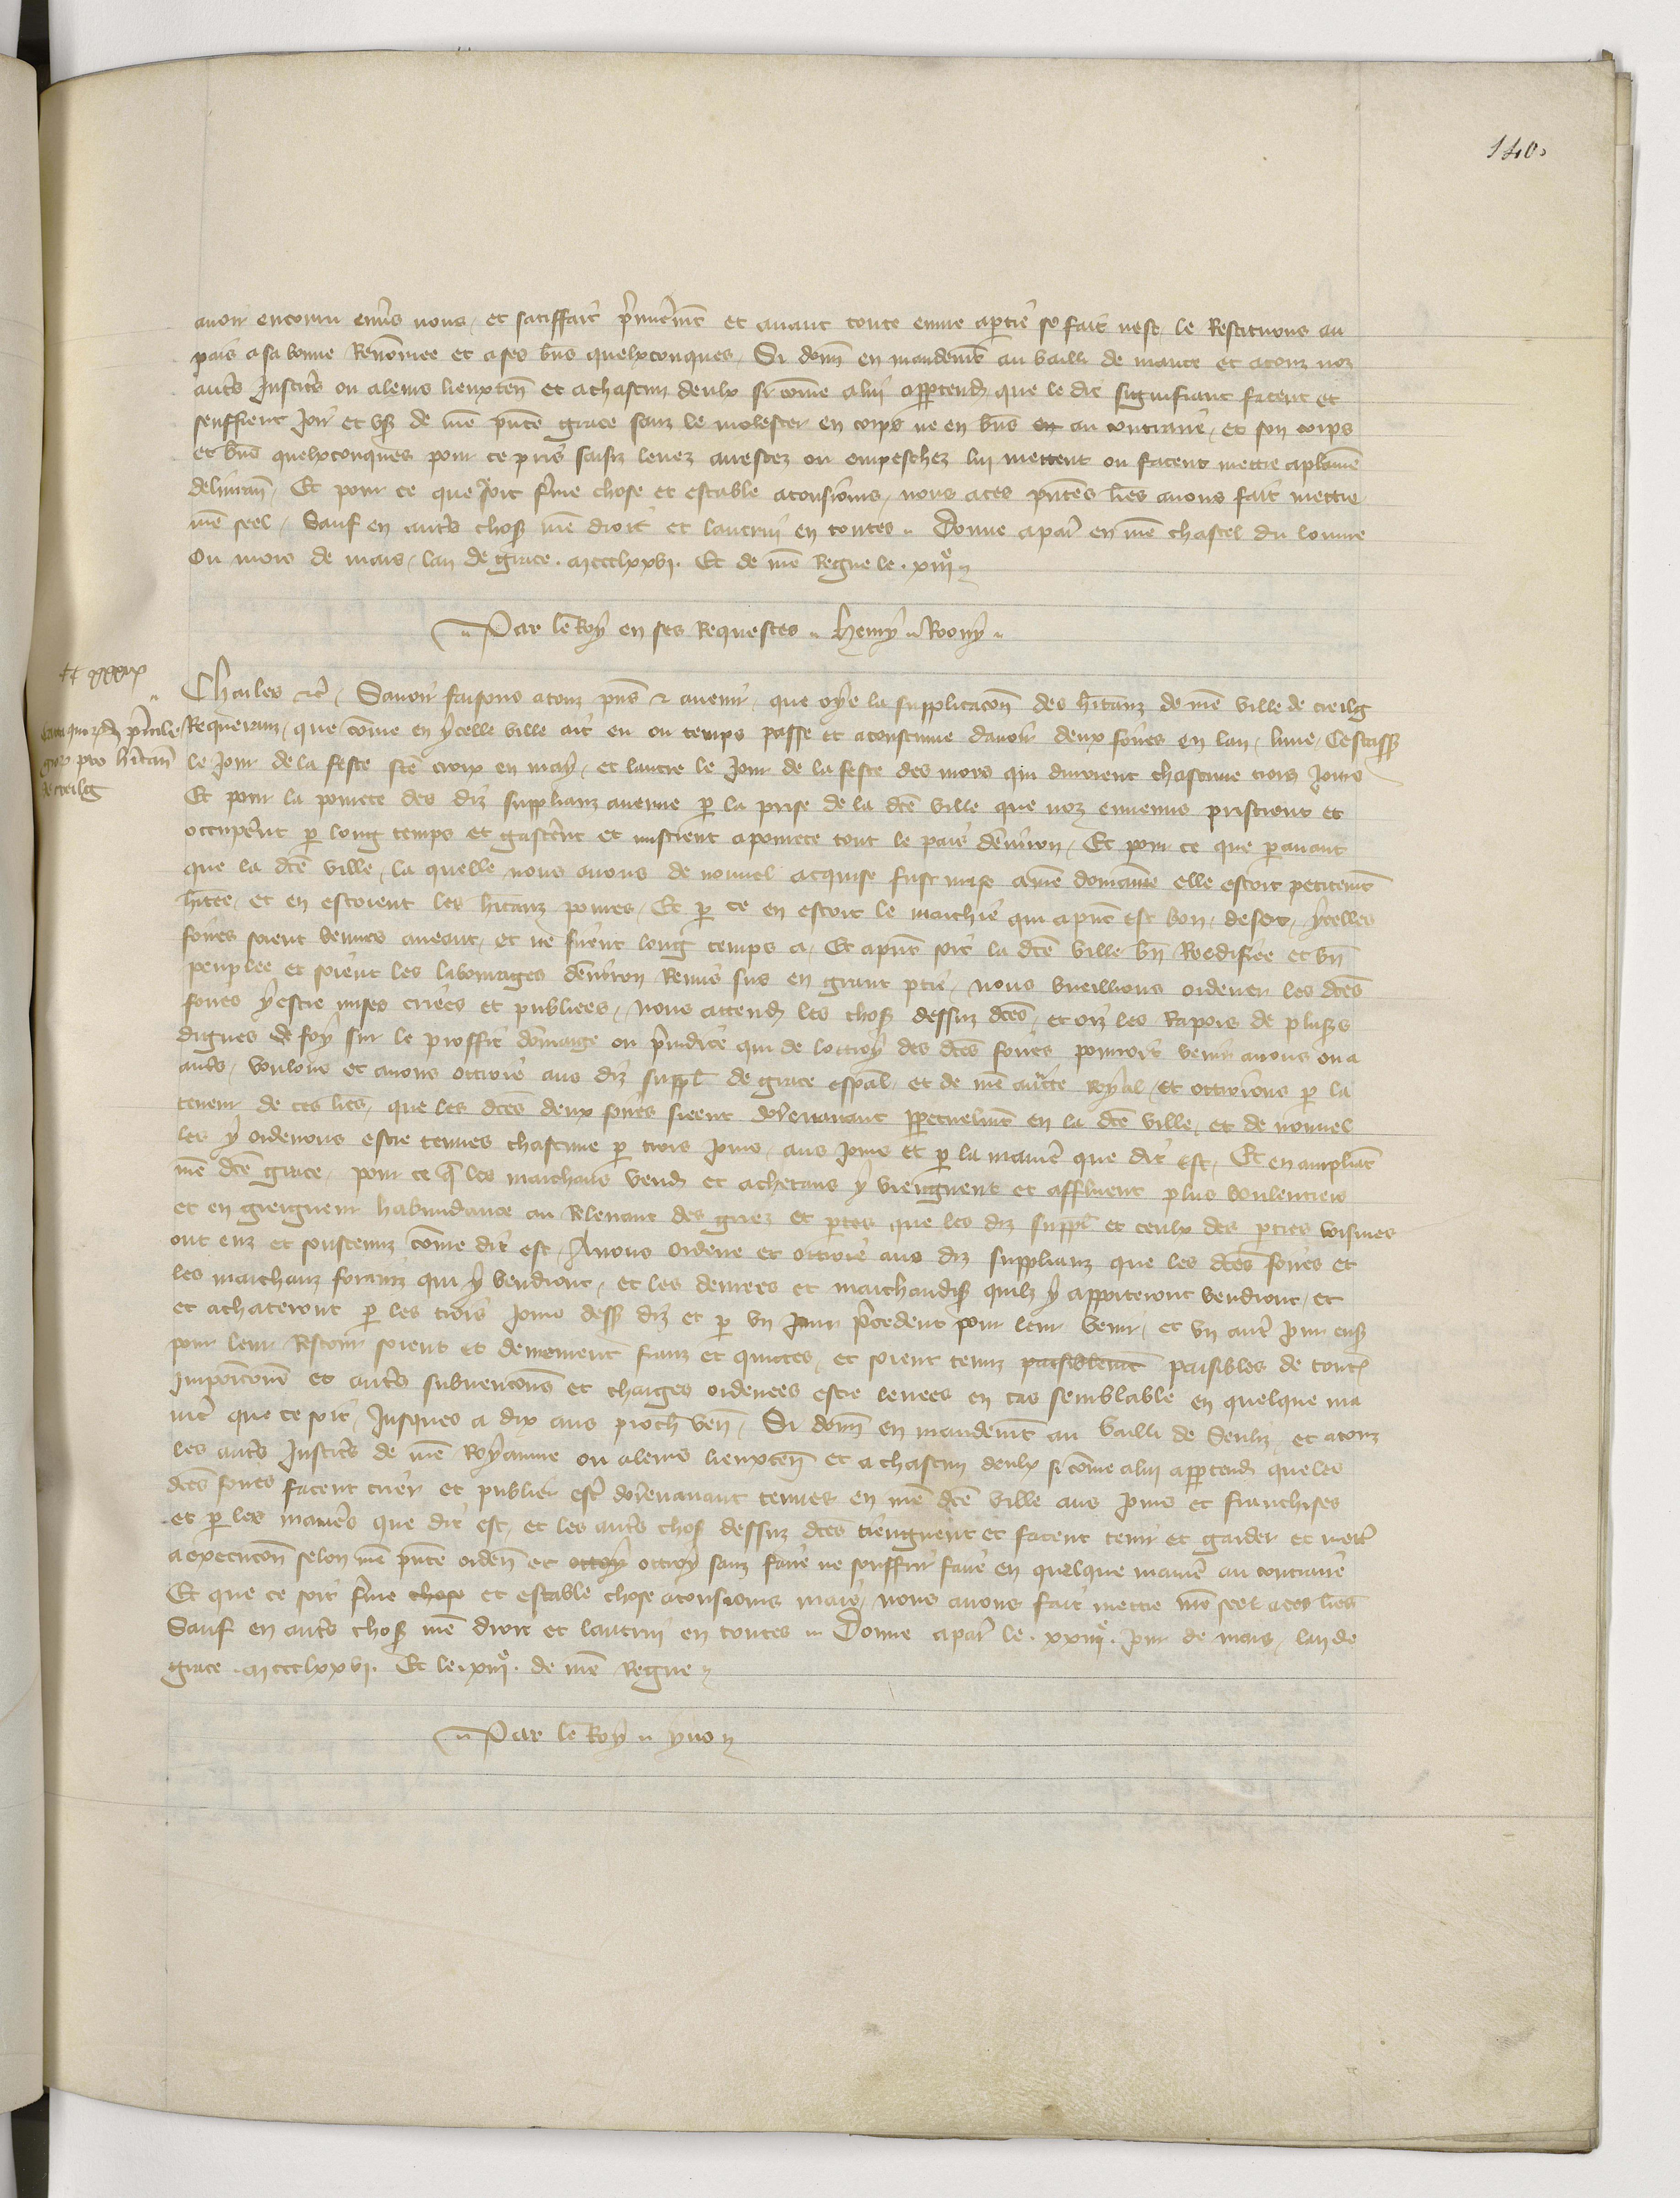 140.
avoir encoru env̾s nous, et satiffait p̾mier̾mt̄ et avant toute euvre a p̱tie se fait nest, le Restituons au
pais a sa bonne Renōmee et a ses bn̄s quelxconques, Si donn̄ en mandemt̄ au bailli de Mante et a touz noz
aut̾s justic̾s ou a leurs lieuxten̄ et a chascun deulx si cōme a lui app̱tend̾ que le dit signifiant facent et
seuffrent joir et us̾ de nr̄e pn̄te grace sanz le molester en corps ne en bn̄s en au contraire, et son corps
et bn̄s quelxconques pour ce pris saisiz levez arrestez ou empeschez lui mettent ou facent mettre a plainne
delivran̄, Et pour ce que soit f̾me chose et estable a tousiours, nous a ces pn̄tes lr̄es avons fait mettre
nr̄e seel, Sauf en aut̾s chos̾ nr̄e droit et lautrui en toutes. Donne a par̾ en nr̄e chastel du louvre
Ou mois de mars, lan de grace. mccclxxvi. Et de nr̄e Regne le. xiii̊
Par le Roy en ses Requestes. Henry. Roony.
de creilg
Charles etc̾, Savoir faisons a touz pn̄s et avenir, que oye la supplicacōn des hitanz de nr̄e ville de creilg
Requerans, que cōme en ycelle ville ait eu ou temps passe et acoustume davoir deux foires en lan, lune, Cestass̾
le jour de la feste ste croix en may, et lautre le jour de la feste des mors qui duroient chascune trois jours
Et pour la povrete des diz supplianz avenue p̱ la prise de la dc̄e ville que noz ennemis pristrent et
occup̾ent p̱ long temps et gast̾ent et mistrent a povrete tout le pais denviron, Et pour ce que p̱avant
que la dc̄e ville, la quelle nous avons de nouvel acquise fust mise a nr̄e domaine elle estoit petitemt̄
hitee, et en estoient les hitanz povres, Et p̱ ce en estoit le marchie qui a pn̄t est bon, desert, ycelles
foires soient venues a neant, et ne furent long temps a, Et a pn̄t soit la dc̄e ville bn̄ Reedifiee et bn̄
peuplee et soient les labourages denviron Remis sus en grant p̱tie, nous vueillions ordener les dc̄es
foires y estre mises criees et publiees, Nous attend̾ les chos̾ dessuz dc̄es, et oiz les Rapors de plus̾s
dignes de foy sur le proffit domage ou p̾iudice qui de lottroy des dc̄es foires pourroit venir a nous ou a
aut̾s, Voulons et avons ottroie aus diz suppl̄ de grace esp̄al, et de nr̄e auct̄e royal, et ottroions p̱ la
teneur de ces lr̄es, que les dc̄es deux foires sieent dor̾enavant p̱petuelmt̄ en la dc̄e ville, et de nouvel
les y ordenons estre tenues chascune p̱ trois jours, aus jours et p̱ la manie̾ que dit est, Et en ampliant
nr̄e dc̄e grace, pour ce q̄ les marchans vend̾ et achetans y viengnent et affluent plus voulentiers
et en greigneur habundance au Relevant des griez et p̱tes que les diz suppl̄ et ceulx des p̱ties voisines
ont euz et soustenuz cōme dit est, Avons ordene et ottroie aus diz supplianz que les dc̄es foires et
les marchanz forains qui y vendront, et les denrees et marchandis̾ quilz y apporteront vendront, et
et achateront p̱ les trois jours dess̾ diz et p̱ un jour p̾cedent pour leur venir, et un aut̾ jour ens̾
pour leur Retour soient et demeurent frans et quittes, et soient tenuz paisiblemt̄ paisibles de tout̾
imposicōns et aut̾s subvencōns et charges ordenees estre levees en cas semblable en quelque ma
nie̾ que ce soit, Jusques a dix ans proch̄ ven̄. Si donn̄ en mandemt̄ au bailli de Senliz, et a touz
les aut̾s justic̾s de nr̄e Royaume ou a leurs lieuxten̄ et a chascun deulx si cōme a lui app̱tend̾ que les
dc̄es foires facent crier et publier est̾ dor̾enavant tenues en nr̄e dc̄e ville aus jours et franchises
et p̱ les manie̾s que dit est, et les aut̾s chos̾ dessuz dc̄es tiengnent et facent tenir et garder et mett̾
a execucōn selon nr̄e pn̄te orden̄ et ottroy ottroy sanz faire ne souffrir faire en quelque manie̾ au contraire
Et que ce soit f̾me chose et estable chose a tousiours mais, nous avons fait mettre nr̄e seel a ces lr̄es
Sauf en aut̾s chos̾ nr̄e droit et lautrui en toutes. Donne a par̾ le. xxiiii̊. jour de mars, lan de
grace. mccclxxvi. Et le. xiii̊. de nr̄e Regne
Par le Roy. yvo